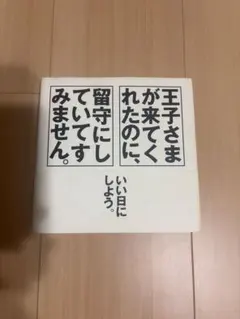 王子さま
が来てく
れたのに、
留守にし
ていてす
みません。
いい日に
しよう。